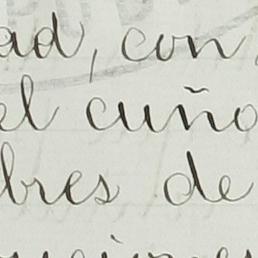 ad, con
el cuño
bres de